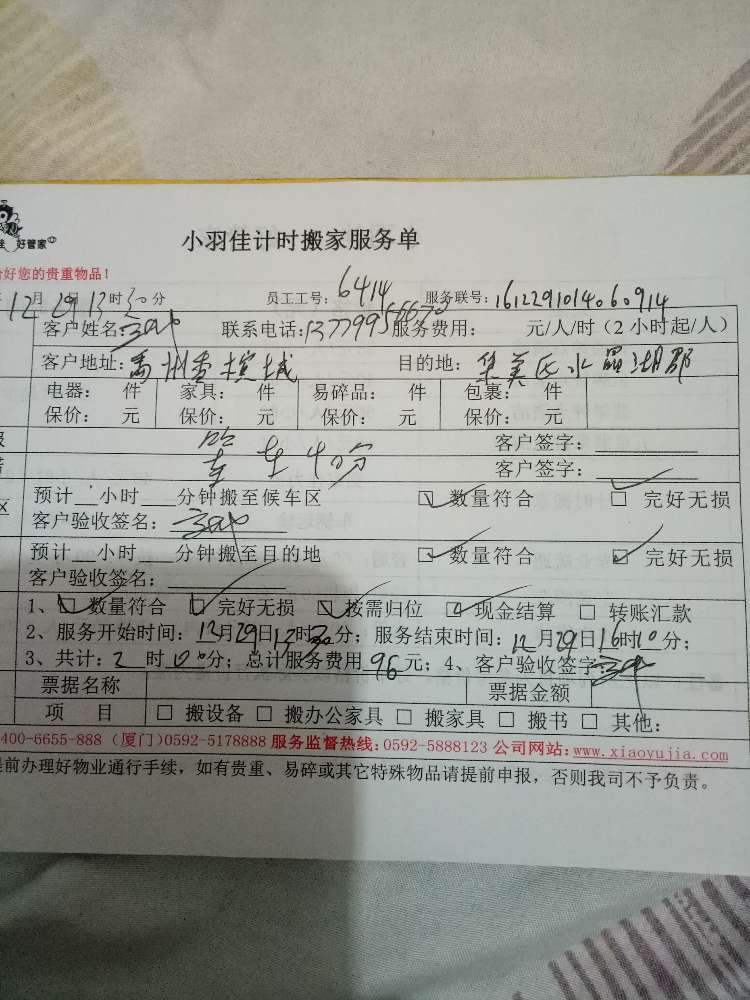 好管家
小羽佳计时搬家服务单
好您的贵重物品！
12月29日13时30分 员工工号：6414 服务联号：1612291014060914
客户姓名： 联系电话： 服务费用： 元/人/时（2小时起/人）
客户地址： 目的地：华美区水晶湖郡
电器： 件 家具： 件 易碎品： 件 包裹： 件
保价： 元 保价： 元 保价： 元 保价： 元
客户签字：
坐车40分 客户签字：
预计 小时 分钟搬至候车区 数量符合 完好无损
客户验收签名：
预计 小时 分钟搬至目的地 数量符合 完好无损
客户验收签名：
1、 数量符合 完好无损 按需归位 现金结算 转账汇款
2、服务开始时间：12月29日13时30分；服务结束时间：12月29日16时10分；
3、共计：2时00分；总计服务费用96元；4、客户验收签字
票据名称 票据金额
项 目 搬设备 搬办公家具 搬家具 搬书 其他：
400-6655-888（厦门）0592-5178888 服务监督热线：0592-5888123 公司网站：www.xiaoyujia.com
前办理好物业通行手续，如有贵重、易碎或其它特殊物品请提前申报，否则我司不予负责。